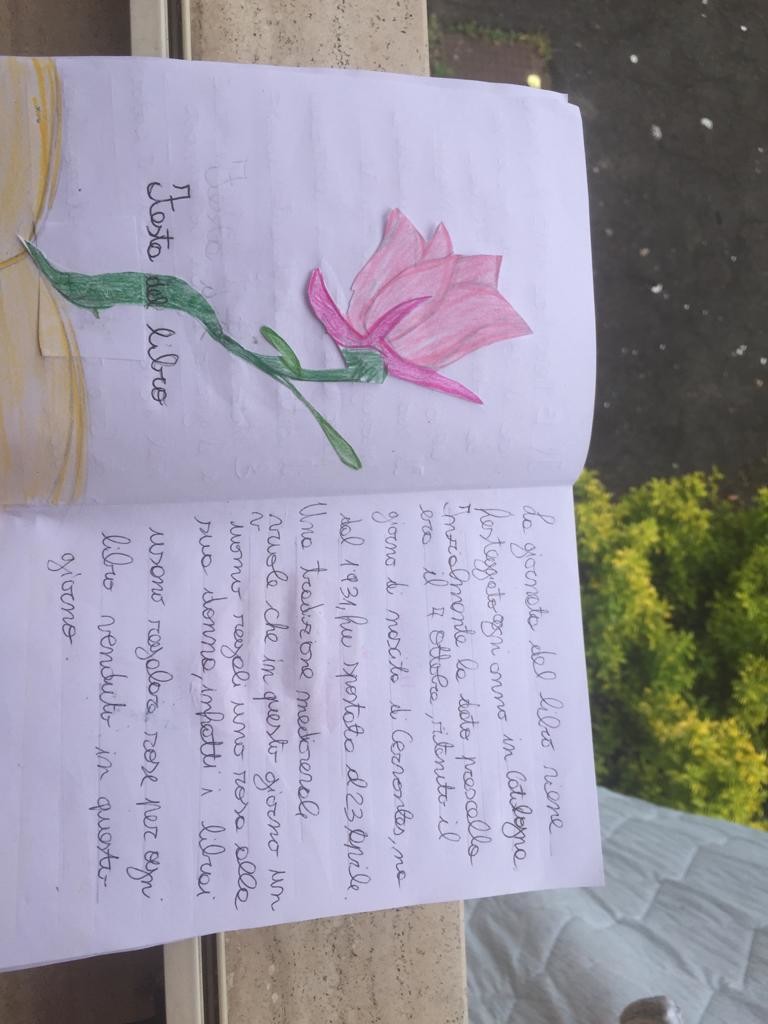 Festa del libro
La giornata del libro viene
festeggiata ogni anno in Catalogna.
Inizialmente la data prescelta
era il 7 ottobre, ritenuto il
giorno di nascita di Cervantes, ma
dal 1931, fu spostata il 23 Aprile.
Una tradizione medioevale
vuole che in questo giorno un
uomo regali una rosa alla
sua donna, infatti i librai
usano regalare rose per ogni
libro venduto in questo
giorno.